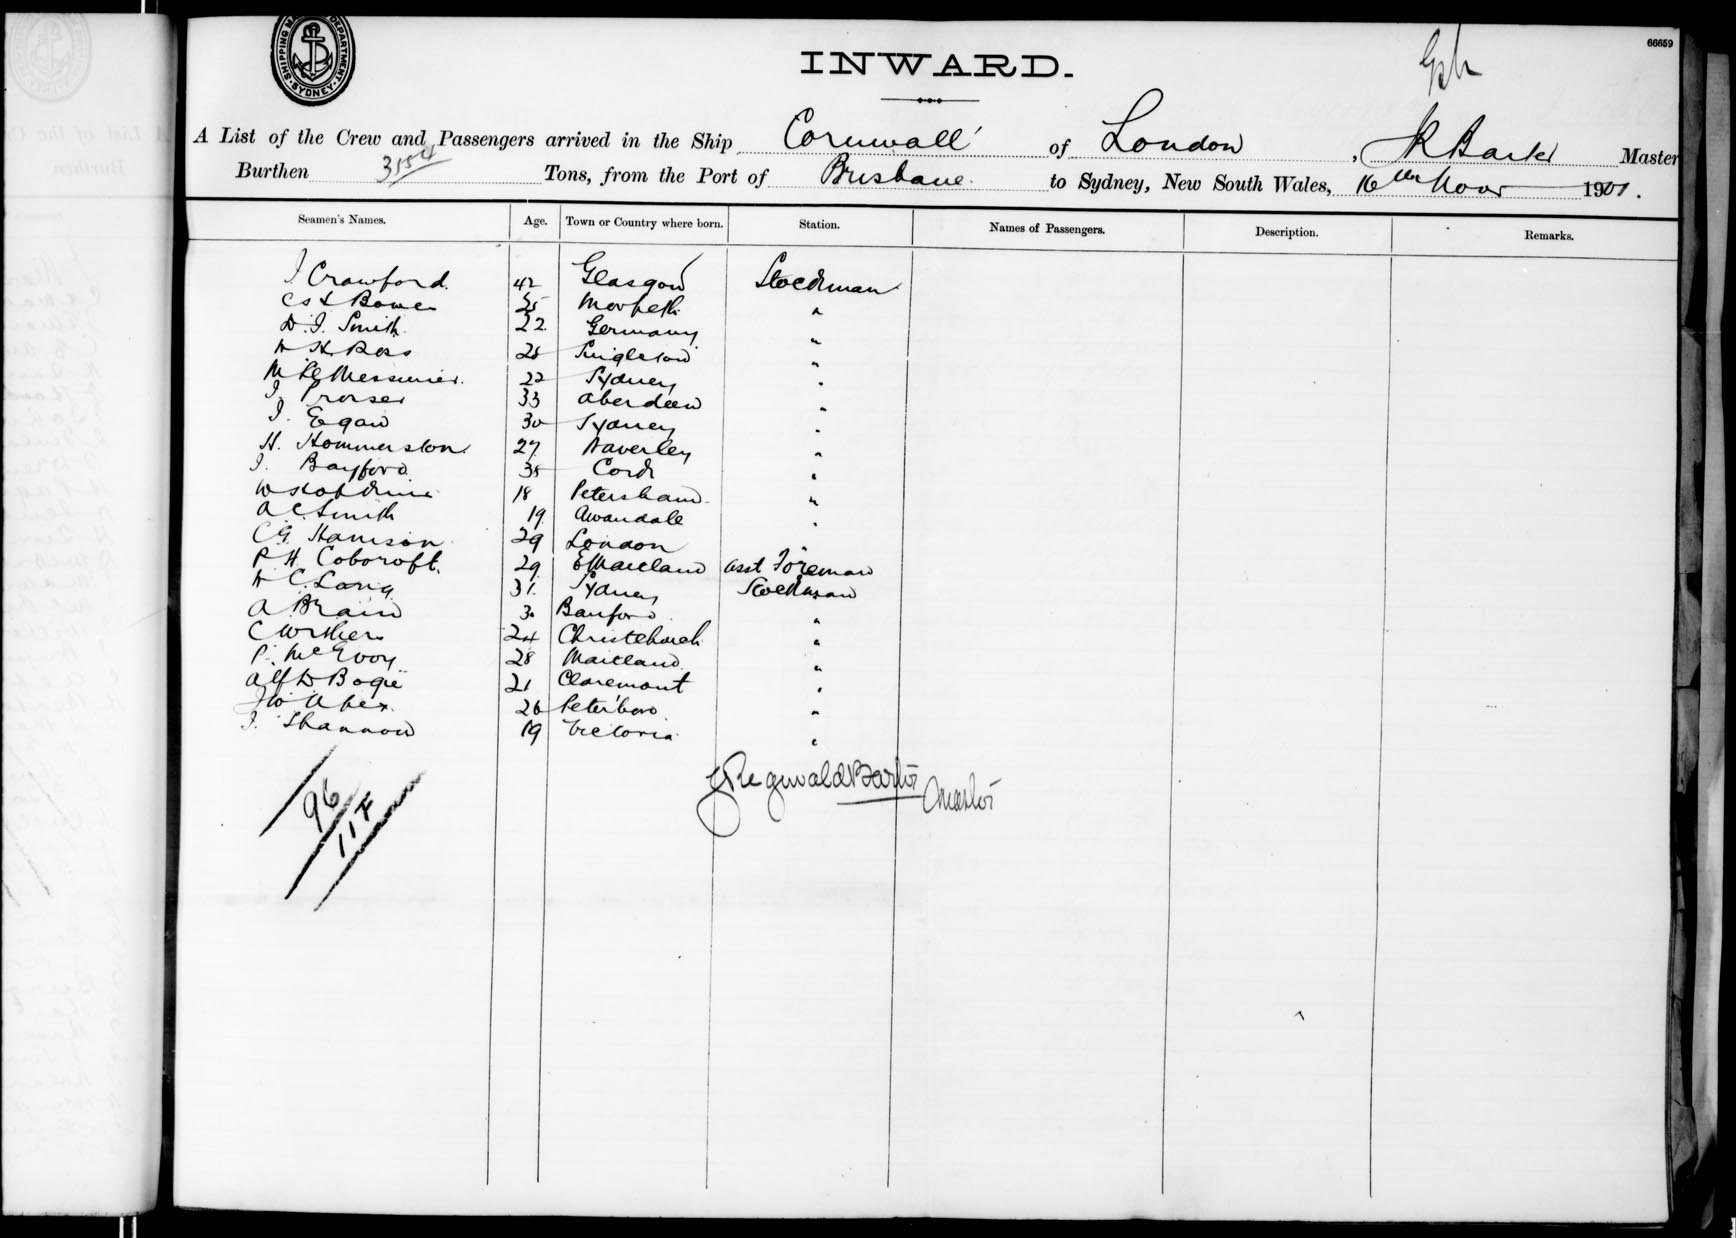 66659
SHIPPING MASTER'S DEPARTMENT SYDNEY
INWARD.
A List of the Crew and Passengers arrived in the Ship Cornwall of London, JR Barter Master
Burthen 3154 Tons, from the Port of Brisbane to Sydney, New South Wales, 16th Novr 1901.
Seamen's Names. Age. Town or Country where born. Station. Names of Passengers. Description. Remarks.
J Crawford. 42 Glasgow Stockman
Bower 25 Morpeth "
D. J. Smith 22 Germany "
W H Ross 28 Singleton "
22 Sydney "
J. Prosser 33 Aberdeen "
J. Egan 30 Sydney "
H. Hommerston 27 Waverley "
J. Bayford 35 Cork "
18 Petersham "
A C Smith 19 "
C G Harrison 29 London "
P H Cobcroft. 29 E Maitland asst Foreman
W C Lang 31 Sydney Stockman
A Brain 30 "
C Withers 24 Christchurch "
P. McEvoy 28 Maitland "
Alf D Bogie 21 Claremont "
26 Peterboro "
J. Shannon 19 Victoria "
J Reginald Barter Master
96
11 F